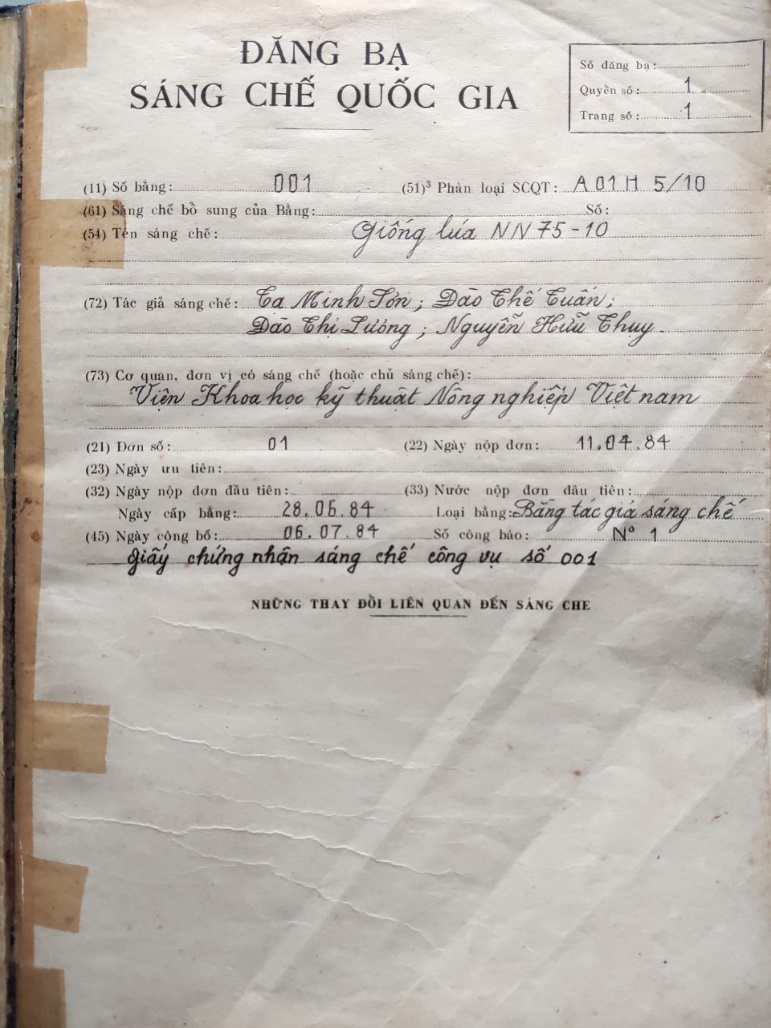 ĐĂNG BẠ
SÁNG CHẾ QUỐC GIA
Số đăng bạ:
Quyển số: 1
Trang số: 1
(11) Số bằng: 001 (51)³ Phân loại SCQT: A 01 H 5/10
(61) Sáng chế bổ sung của Bằng: Số:
(54) Tên sáng chế: Giống lúa NN 75-10
(72) Tác giả sáng chế: Tạ Minh Sơn; Đào Thế Tuấn;
Đào Thị Lương; Nguyễn Hữu Thuy.
(73) Cơ quan, đơn vị có sáng chế (hoặc chủ sáng chế):
Viện Khoa học kỹ thuật Nông nghiệp Việt nam
(21) Đơn số: 01 (22) Ngày nộp đơn: 11.04.84
(23) Ngày ưu tiên:
(32) Ngày nộp đơn đầu tiên: (33) Nước nộp đơn đầu tiên:
Ngày cấp bằng: 28.06.84 Loại bằng: Bằng tác giả sáng chế
(45) Ngày công bố: 06.07.84 Số công báo: Nº 1
Giấy chứng nhận sáng chế công vụ số 001
NHỮNG THAY ĐỔI LIÊN QUAN ĐẾN SÁNG CHE